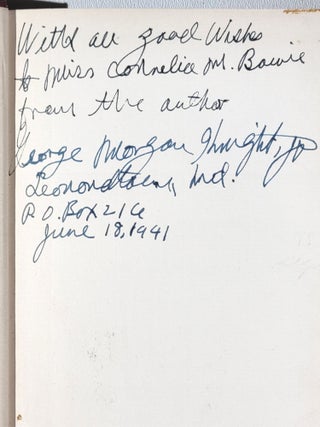 With all good Wishes
to Miss Cornelia M. Bowie
from the author
George Morgan Knight, Jr
Leonardtown, Md.
P.O. Box 216
June 18, 1941